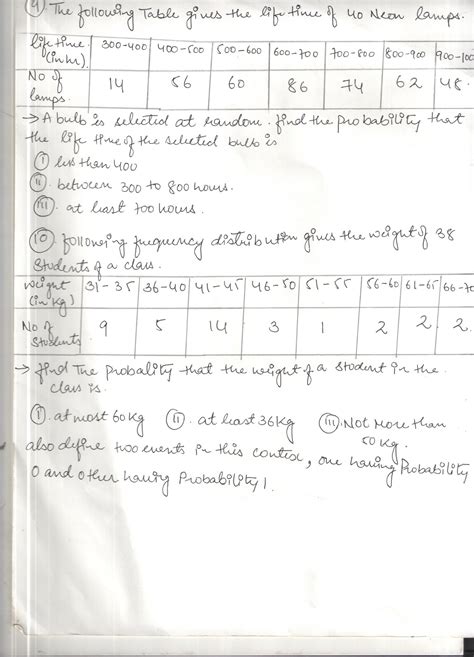 9) The following Table gives the life time of 40 Neon lamps.
life time (in hr.) 300-400 400-500 500-600 600-700 700-800 800-900 900-100
No of lamps. 14 56 60 86 74 62 48
→ A bulb is selected at random. find the probability that
the life time of the selected bulb is
(i) less than 400
(ii) between 300 to 800 hours.
(iii) at least 700 hours.
(10) following frequency distribution gives the weight of 38
students of a class.
weight (in kg) 31-35 36-40 41-45 46-50 51-55 56-60 61-65 66-70
No of Students 9 5 14 3 1 2 2 2
→ find The probality that the weight of a student in the
class is.
(i). at most 60kg (ii). at least 36kg (iii) Not More than
50 kg.
also define two events in this contex, one having Probability
0 and other having Probability 1.